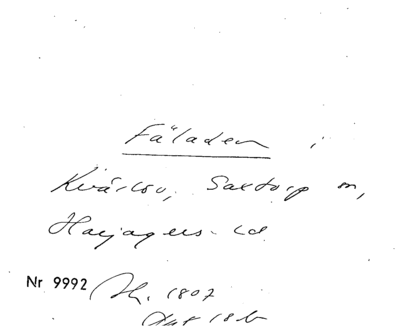 Fäladen i
Kvärlöv, Saxtorp sn,
Harjagers hd
Nr 9992 Jh. 1807